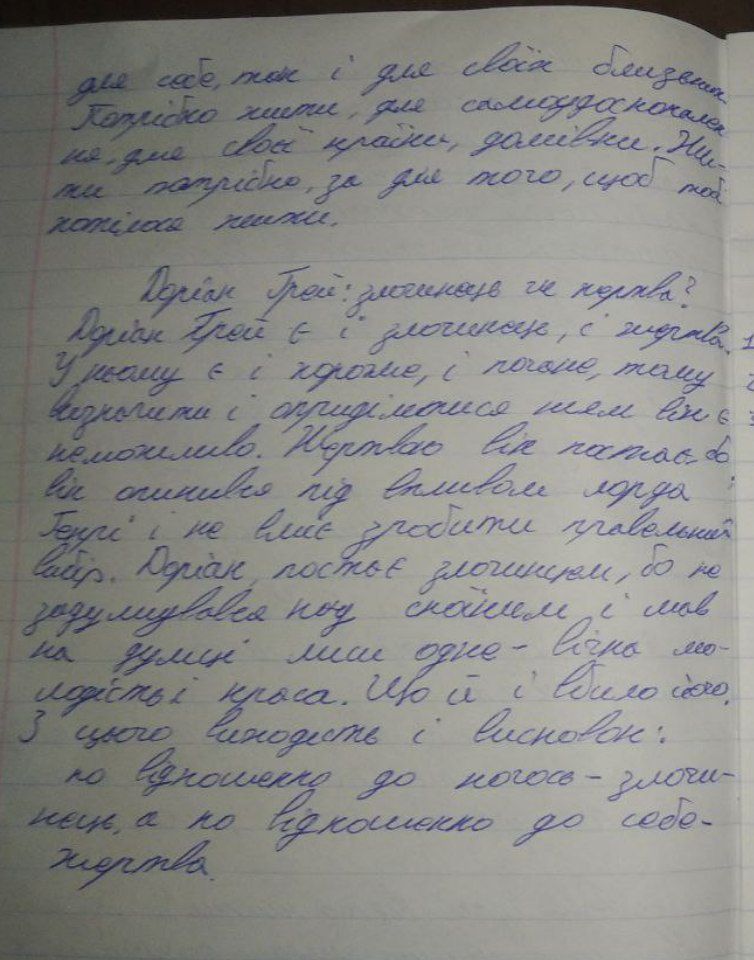 для себе, так і для своїх близьких.
Потрібно жити, для самоудосконален
ня, для своєї країни, домівки. Жи-
ти потрібно, за для того, щоб тобі
хотілося жити.
Доріан Грей: злочинець чи жертва?
Доріан Грей є і злочинець, і жертва.
У ньому є і хороше, і погане, тому
визначити і оприділитися ким він є
неможливо. Жертвою він постає, бо
він опинився під впливом лорда
Генрі і не вміє зробити правельний
вибір. Доріан, постає злочинцем, бо не
задумувався над скоїним і мав
на думці лиш одне - вічна мо-
лодість і краса. Що й і вбило його.
З цього виходить і висновок:
по відношенню до когось - злочи-
нець, а по відношенню до себе -
жертва.